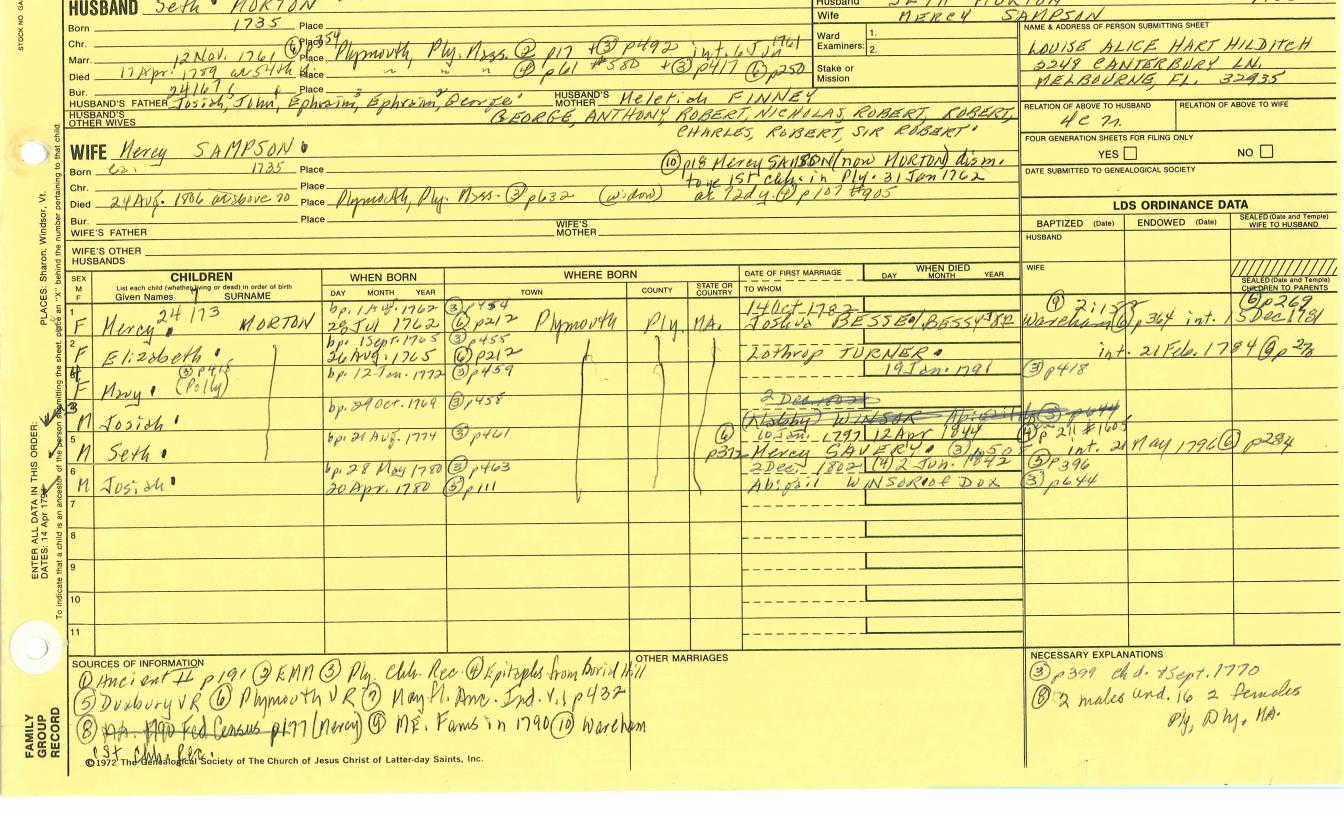 HUSBAND Seth MORTON
Born 1735 Place
Chr. Place
Marr. 12 Nov. 1761 ⑥ p354 Place Plymouth, Ply. Mass. ② p17 + ③ p492 int. 6 Jun 1761
Died 17 Apr. 1789 Place " " " ④ p61 #580 + ③ p417 ⑥ p250
Bur. 24167 Place
HUSBAND'S FATHER Josiah, John, Ephraim, Ephraim, George HUSBAND'S MOTHER Meletiah FINNEY
HUSBAND'S OTHER WIVES GEORGE, ANTHONY, ROBERT, NICHOLAS, ROBERT, ROBERT,
CHARLES, ROBERT, SIR ROBERT
WIFE Mercy SAMPSON
Born ca. 1735 Place
⑩ p18 Mercy SAMSON (now MORTON) dism.
to ye 1st chh. in Ply. 31 Jan 1762
Chr. Place
Died 24 Aug. 1806 Place Plymouth, Ply. Mass. ③ p632 (widow) ae 72dy. ④ p107 #905
Bur. Place
WIFE'S FATHER WIFE'S MOTHER
WIFE'S OTHER HUSBANDS
Husband SETH MORTON
Wife MERCY SAMPSON
Ward Examiners: 1.
2.
Stake or Mission
NAME & ADDRESS OF PERSON SUBMITTING SHEET
LOUISE ALICE HART HILDITCH
2248 CANTERBURY LN.
MELBOURNE, FL. 32935
RELATION OF ABOVE TO HUSBAND RELATION OF ABOVE TO WIFE
FOUR GENERATION SHEETS FOR FILING ONLY
YES NO
DATE SUBMITTED TO GENEALOGICAL SOCIETY
LDS ORDINANCE DATA
BAPTIZED (Date) ENDOWED (Date) SEALED (Date and Temple) WIFE TO HUSBAND
HUSBAND
WIFE
SEALED (Date and Temple) CHILDREN TO PARENTS
SEX M F CHILDREN
List each child (whether living or dead) in order of birth
Given Names SURNAME
WHEN BORN DAY MONTH YEAR
WHERE BORN TOWN COUNTY STATE OR COUNTRY
DATE OF FIRST MARRIAGE TO WHOM
WHEN DIED DAY MONTH YEAR
1 24173 bp. 1 Aug. 1762 ③ p454 14 Oct 1782 ⑨ 2:15 ⑥ p269
F Mercy MORTON 29 Jul 1762 ⑥ p212 Plymouth Ply. MA. Joshua BESSE/BESSY Wareham ⑥ p364 int. 15 Dec 1781
2 bp. 1 Sept. 1765 ③ p455
F Elizabeth 26 Aug. 1765 ⑥ p212 Lothrop TURNER int. 21 Feb. 1784
4 ③ p418 bp. 12 Jan. 1772 ③ p459 19 Jan. 1791 ③ p418
F Mary (Polly)
3 bp. 29 Oct. 1769 ③ p458 2 Dec. 1802
M Josiah (Nabby) WINSOR ③ p644
5 bp. 21 Aug. 1774 ③ p461 ⑥ 10 Jan. 1797 12 Apr 1844 ④ p 211 #1605
M Seth p372 Mercy SAVERY ③ p505 int. 21 May 1796 ⑥ p284
6 bp. 28 May 1780 ③ p463 2 Dec. 1802 2 Jun. 1842 ⑤ p396
M Josiah 20 Apr. 1780 ⑤ p111 Abigail WINSOR of Dox ③ p644
7
8
9
10
11
SOURCES OF INFORMATION
① Ancient II p191 ② EMM ③ Ply. Chh. Rec. ④ Epitaphs from Burial Hill
⑤ Duxbury VR ⑥ Plymouth VR ⑦ Mayfl. Anc. Ind. V.1 p432
⑧ MA. 1790 Fed Census p177 (Mercy) ⑨ ME. Fams in 1790 ⑩ Wareham
1st Chh. Rec.
OTHER MARRIAGES
NECESSARY EXPLANATIONS
③ p399 ch d. 8 Sept. 1770
⑧ 2 males und. 16 2 females
Ply, Ply, MA.
©1972 The Genealogical Society of The Church of Jesus Christ of Latter-day Saints, Inc.
FAMILY GROUP RECORD
ENTER ALL DATA IN THIS ORDER:
DATES: 14 Apr 1794
PLACES: Sharon, Windsor, Vt.